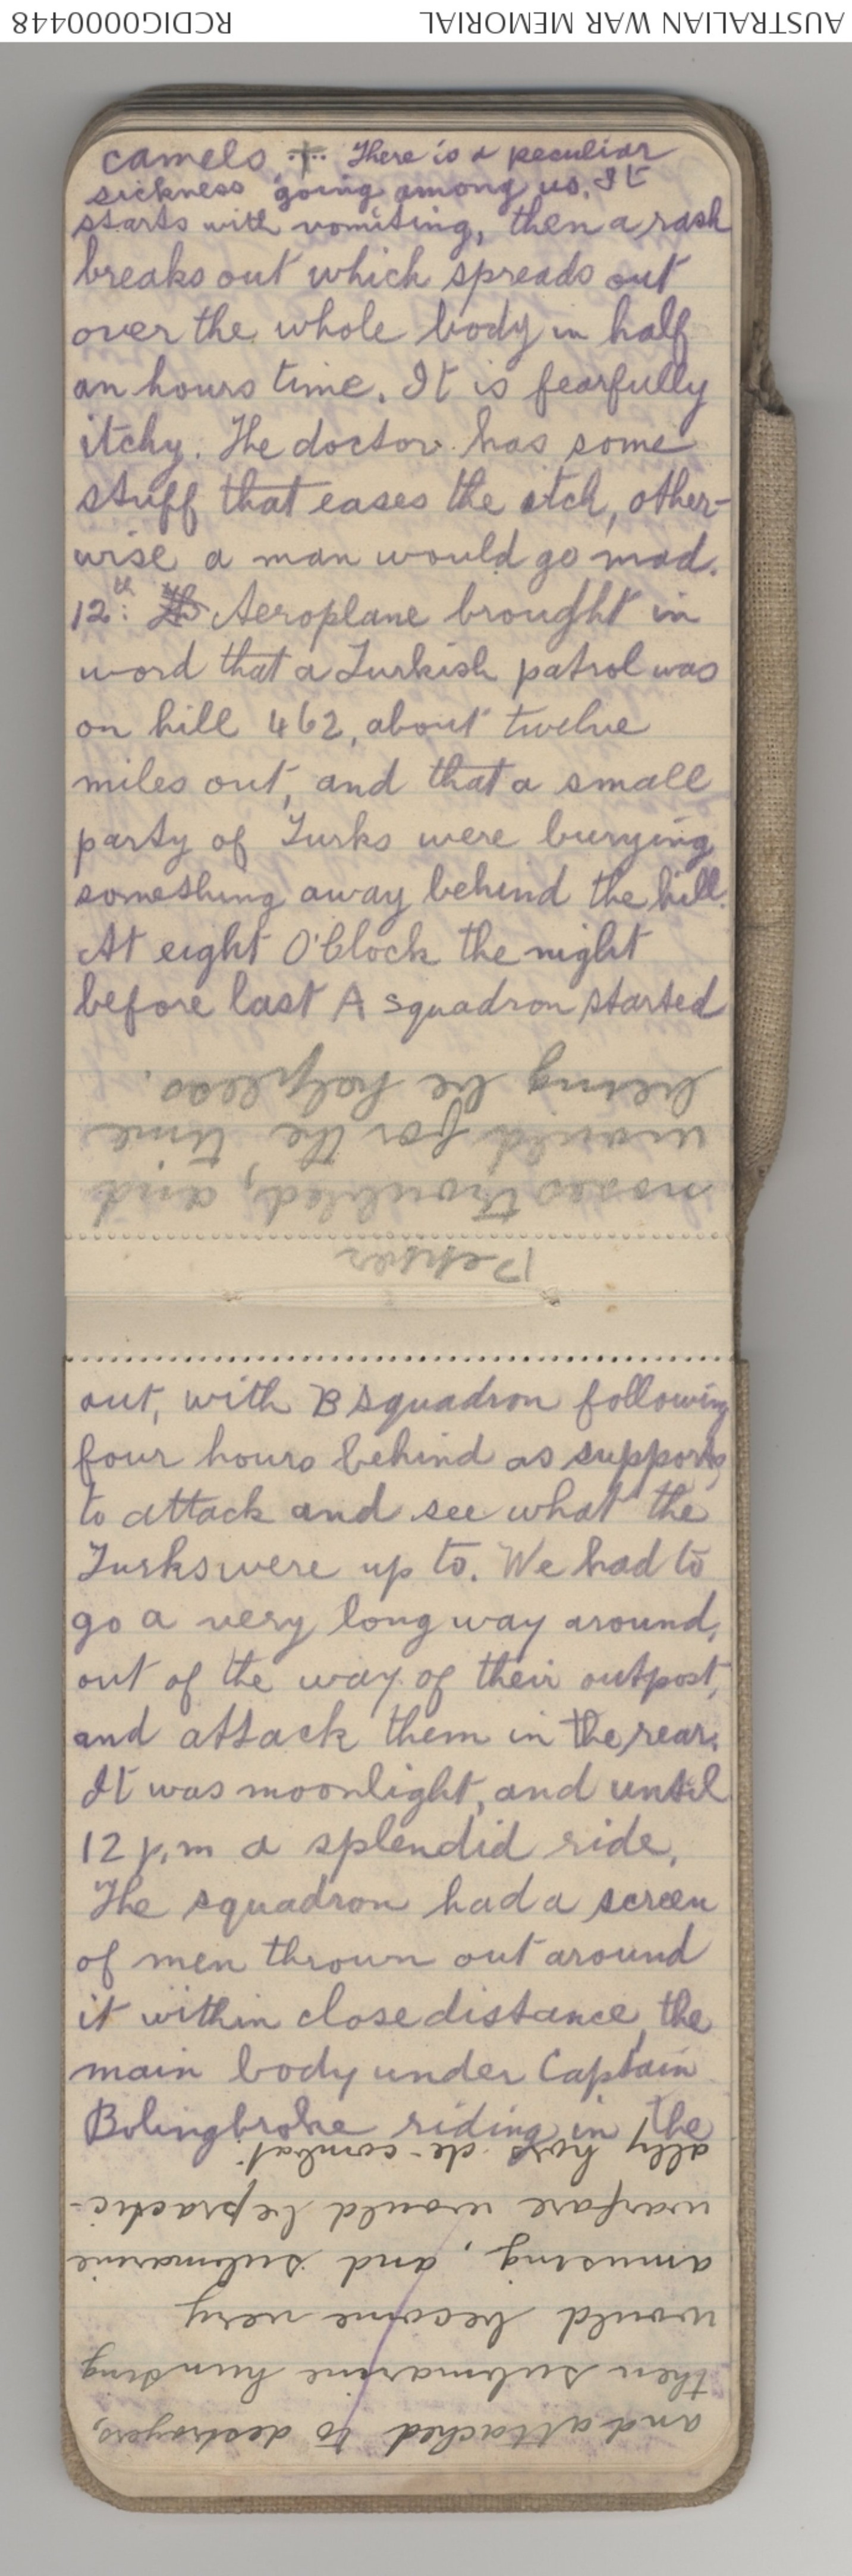 AUSTRALIAN WAR MEMORIAL
RCDIG0000448
camels .+. There is a peculiar
sickness going among us. It
starts with vomiting, then a rash
breaks out which spreads out
over the whole body in half
an hours time. It is fearfully
itchy. The doctor has some
stuff that eases the itch, other-
wise a man would go mad.
12th: Aeroplane brought in
word that a Turkish patrol was
on hill 462, about twelve
miles out, and that a small
party of Turks were burying
something away behind the hill.
At eight O'Clock the night
before last A squadron started
out, with B squadron following
four hours behind as supports
to attack and see what the
Turks were up to. We had to
go a very long way around,
out of the way of their outpost,
and attack them in the rear.
It was moonlight, and until
12 p.m a splendid ride.
The squadron had a screen
of men thrown out around
it within close distance, the
main body under Captain
Bolingbroke riding in the
and attached to destroyers,
then submarine hunting
would become very
amusing, and submarine
warfare would be practic-
ally hors-de-combat.
Pepper
noses troubled, and
would for the time
being be helpless.